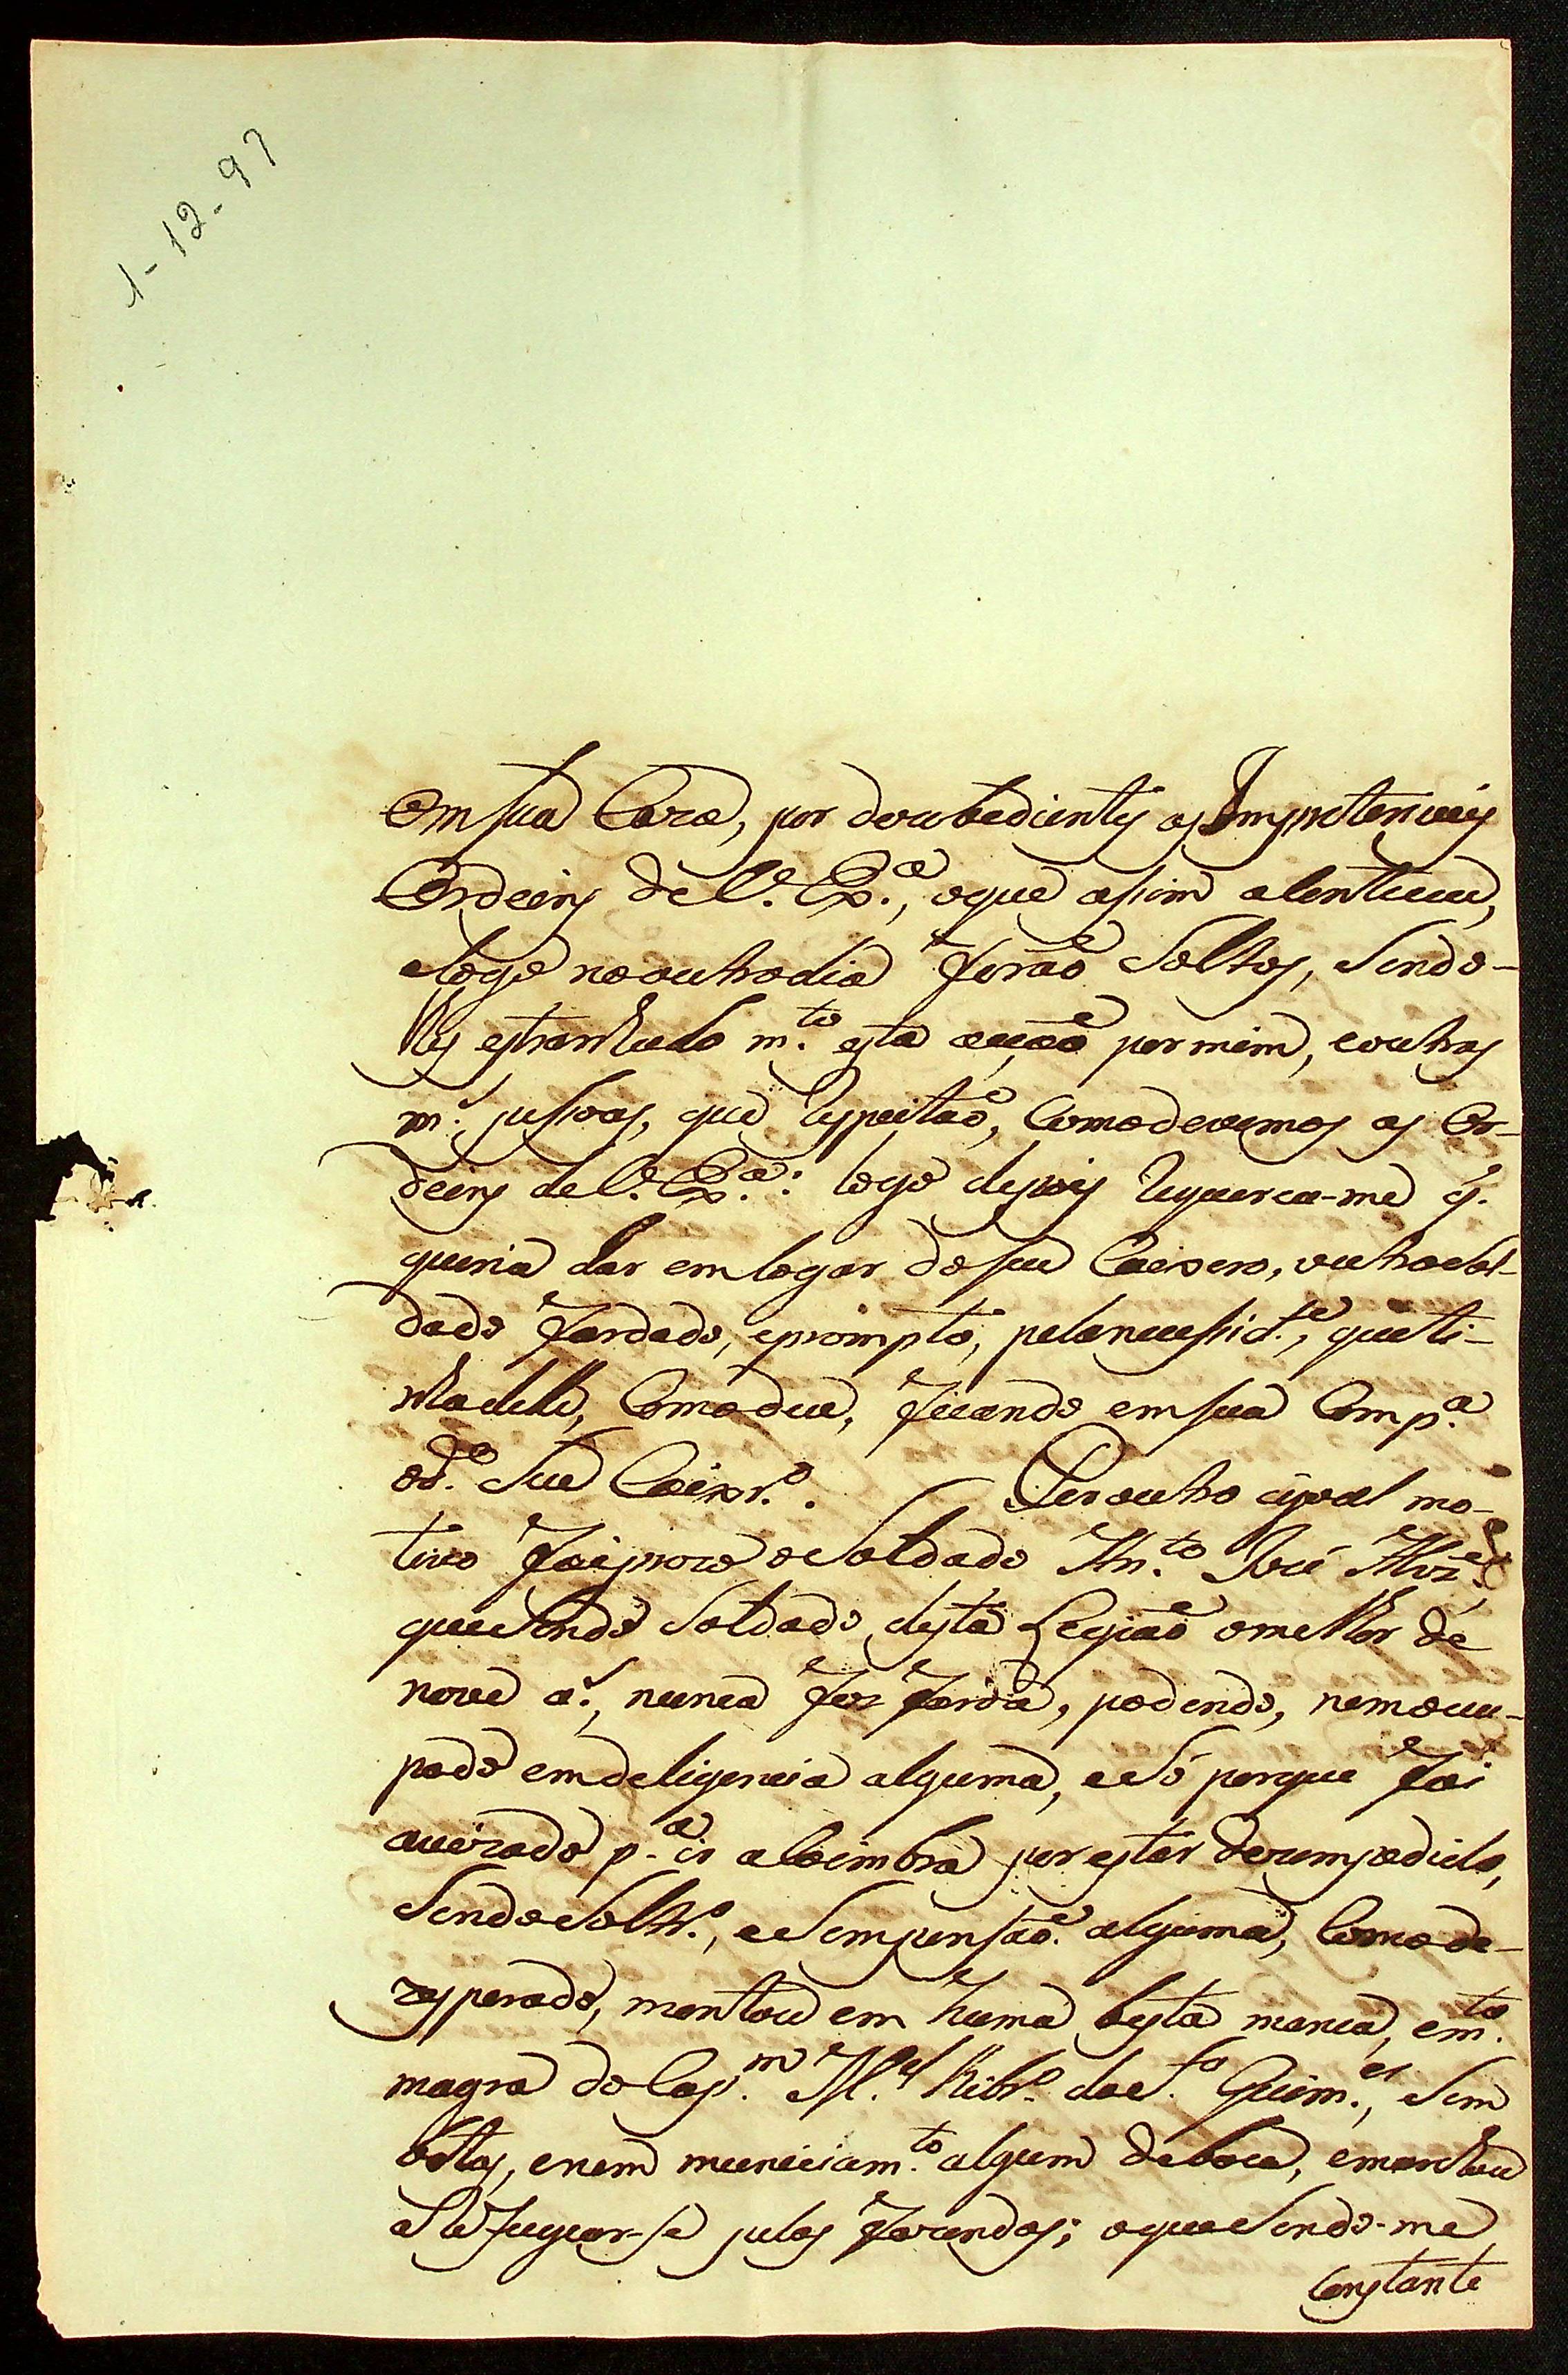 1-12-97
em sua Caza, por dezobedientes as Impretenciveis
Ordeins de V. Ex.ª, o que asim aconteceu,
e logo no outro dia forão soltos, sendo-
lhes estranhado m.to esta acção por mim, e outras
m.s pessoas, que respeitão, como devemos as Or-
deins de V. Ex.ª: logo depois requereu-me q.
queria dar em logar do seu Caixero, outro sol-
dado fardado, e prompto, pela necessid.e, que ti-
nha delle, como deu, ficando em sua Comp.ª
o d.o seu Caixr.o. Por outro igoal mo-
tivo foi prezo o Soldado An.to José Alvz.
que sendo Soldado desta Legião o melhor de
nove a.s, nunca fez farda, podendo, nem ocu-
pado em deligencia alguma, e só porque foi
avizado p.ª ir a Coimbra por estar dezempedido,
sendo soltr.o, e sem pensão alguma, como de-
zesperado, montou em huma besta manca, e m.to
magra do Cap.m M.el Ribr.o da S.ª Guim.es, sem
botas, e nem municiam.to algum de boca, e marchou
a refugiar-se pelas fazendas; o que sendo-me
constante